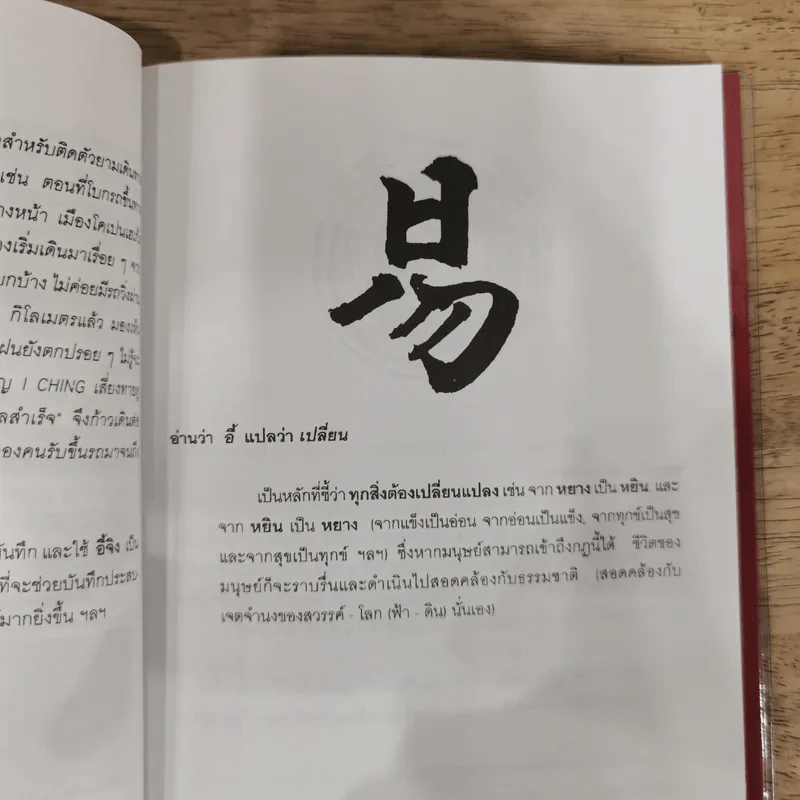 สำหรับติดตัวยามเดินทาง
เช่น ตอนที่โบกรถขึ้นทาง
หน้า เมืองโคเปนเฮเก
เริ่มเดินมาเรื่อย ๆ จาก
บ้าง ไม่ค่อยมีรถวิ่งผ่าน
กิโลเมตรแล้ว มองเห็น
ฝนยังตกปรอย ๆ ไม่รู้จะ
I CHING เสี่ยงทาย
สำเร็จ" จึงก้าวเดินต่อ
ของคนรับขึ้นรถมาจนถึง
บันทึก และใช้ อี้จิง เป็น
ที่จะช่วยบันทึกประสบ-
มากยิ่งขึ้น ฯลฯ
易
อ่านว่า อี้ แปลว่า เปลี่ยน
เป็นหลักที่ชี้ว่า ทุกสิ่งต้องเปลี่ยนแปลง เช่น จาก หยาง เป็น หยิน และ
จาก หยิน เป็น หยาง (จากแข็งเป็นอ่อน จากอ่อนเป็นแข็ง, จากทุกข์เป็นสุข
และจากสุขเป็นทุกข์ ฯลฯ) ซึ่งหากมนุษย์สามารถเข้าถึงกฎนี้ได้ ชีวิตของ
มนุษย์ก็จะราบรื่นและดำเนินไปสอดคล้องกับธรรมชาติ (สอดคล้องกับ
เจตจำนงของสวรรค์ - โลก (ฟ้า - ดิน) นั่นเอง)